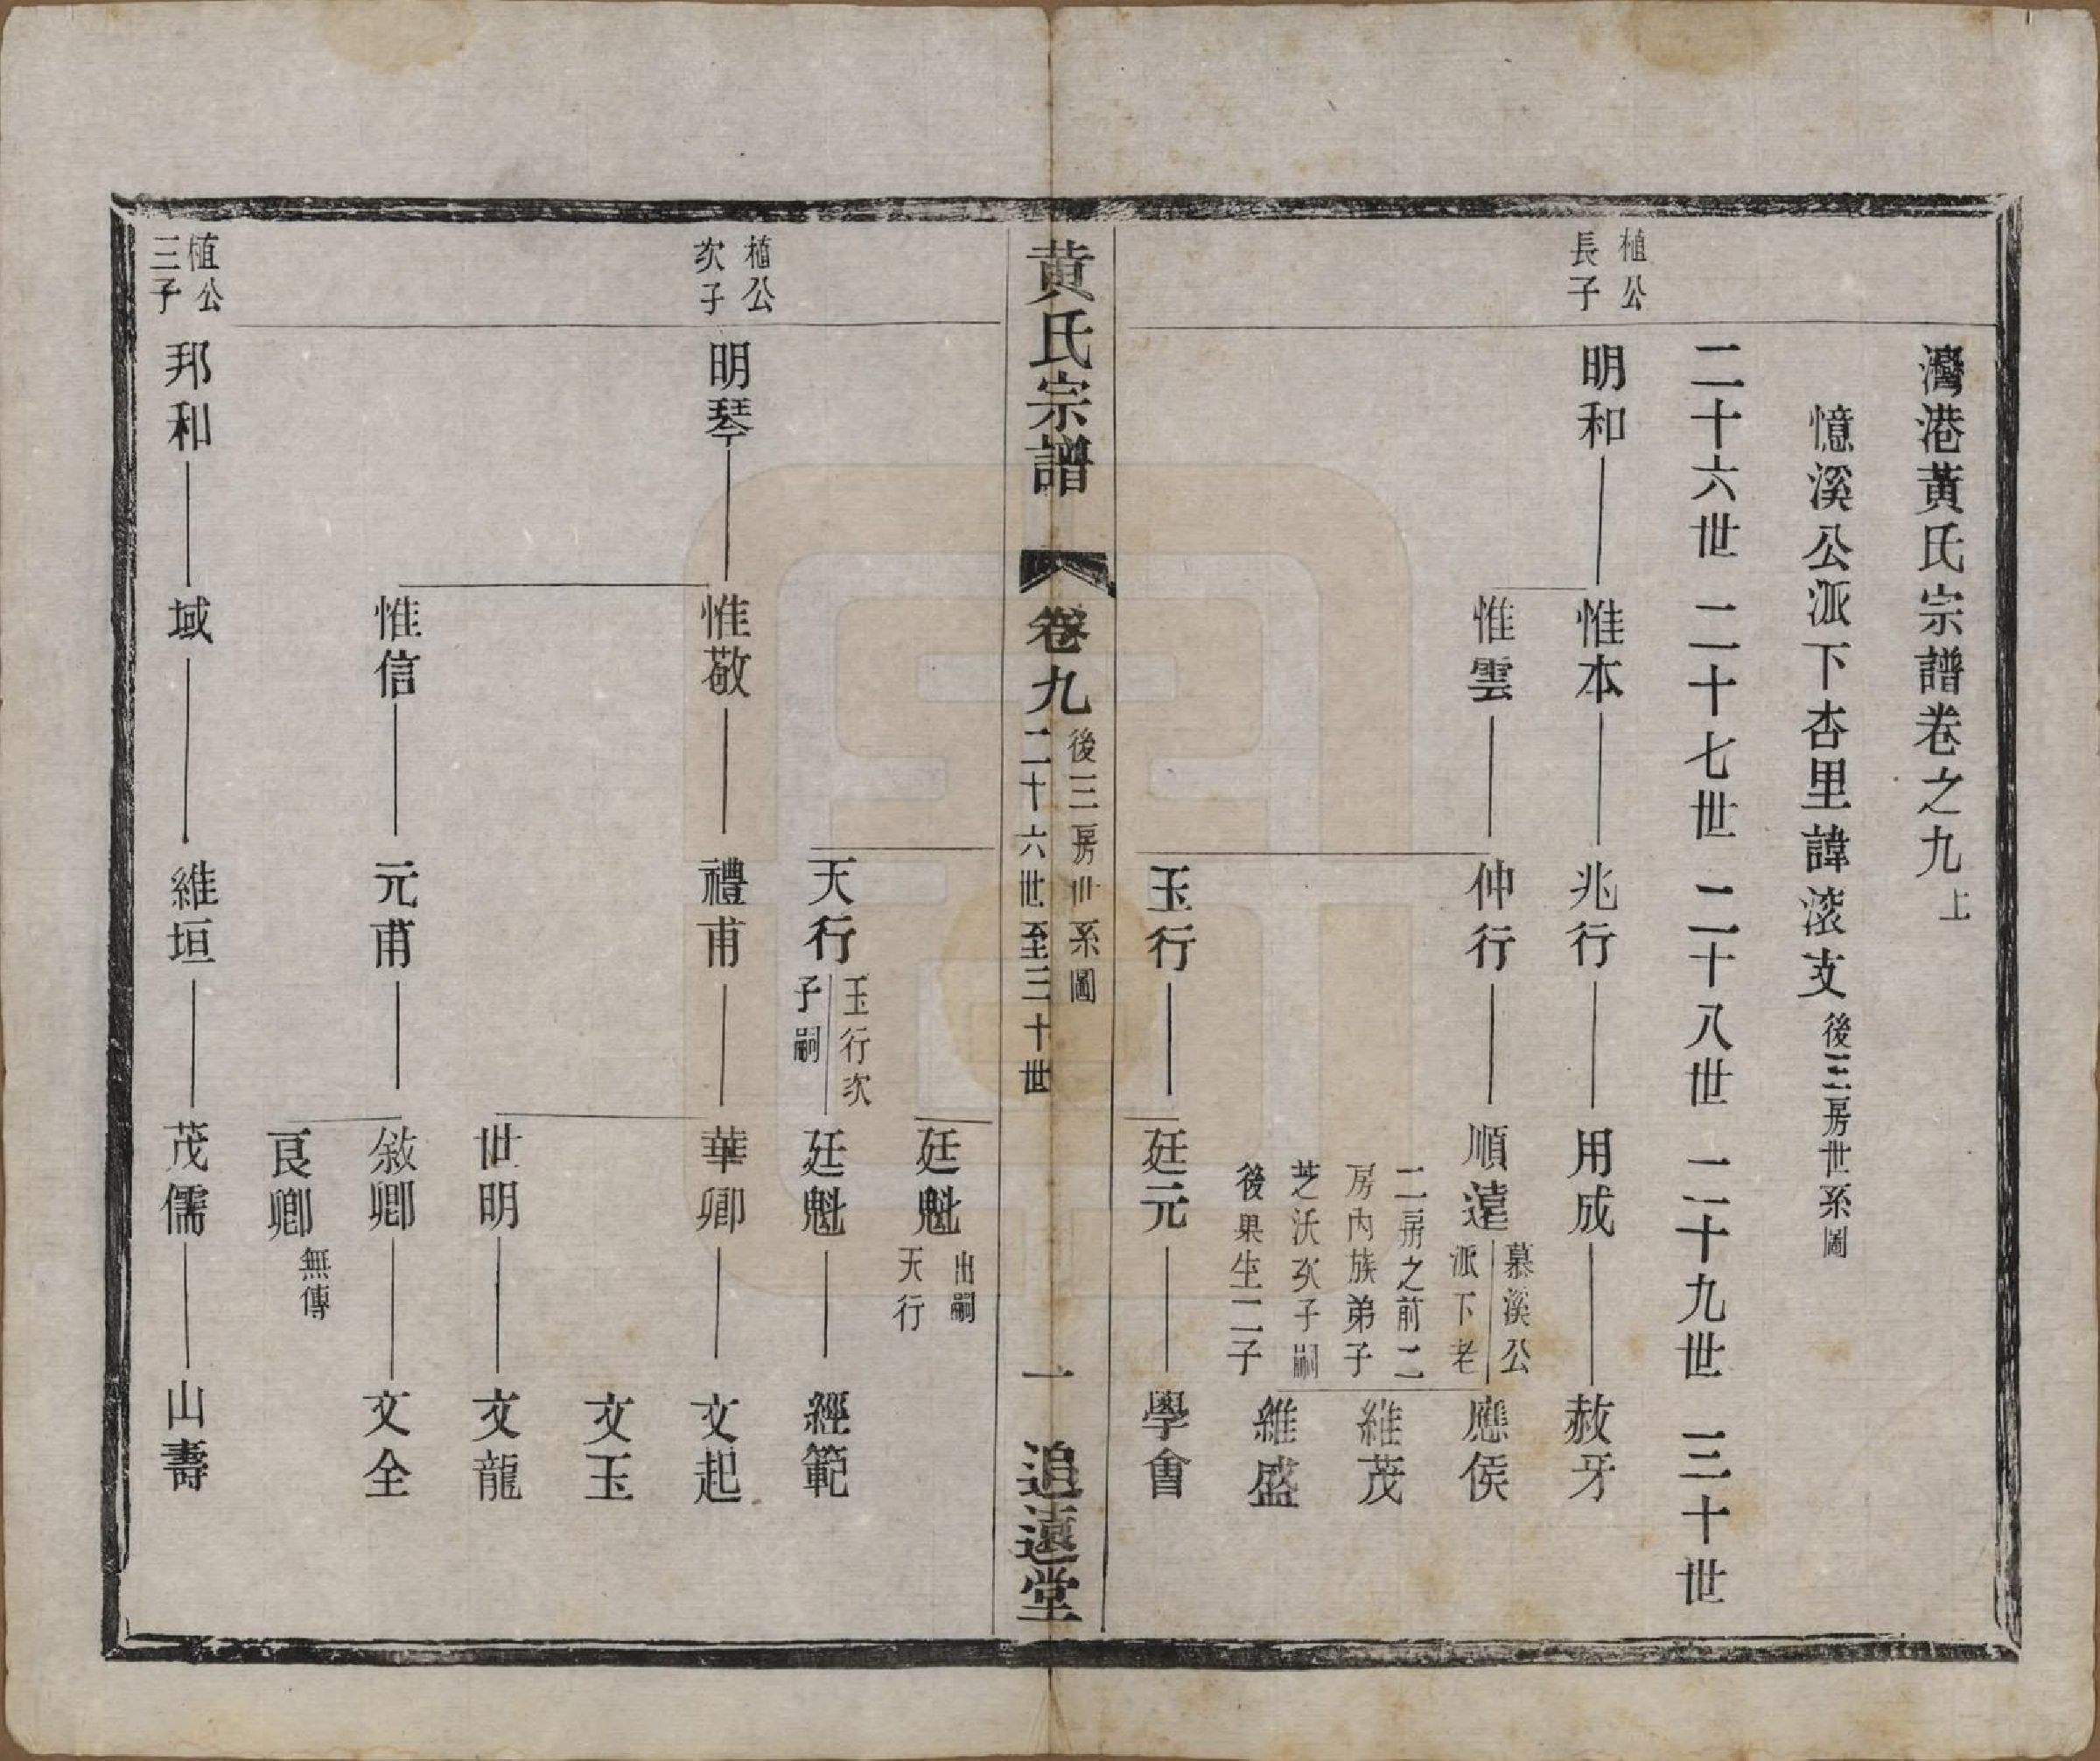 灣港黃氏宗譜卷之九上
憶溪公派下杏里諱滾支後三房世系圖
二十六世 二十七世 二十八世 二十九世 三十世
植公
長子
明和 惟本 兆行 用成 赦牙
惟雲 仲行 順遠 慕溪公
派下老
應侯
二房之前二
房內族弟子
芝沃次子嗣
後果生二子
維茂
維盛
玉行 廷元 學會
黃氏宗譜 卷九 後三房世系圖
二十六世至三十世
一 追遠堂
廷魁 出嗣
天行
天行 玉行次
子嗣
廷魁 經範
植公
次子
明琴 惟敬 禮甫 華卿 文起
文玉
世明 文龍
惟信 元甫 敘卿 文全
良卿 無傳
植公
三子
邦和 域 維垣 茂儒 山壽